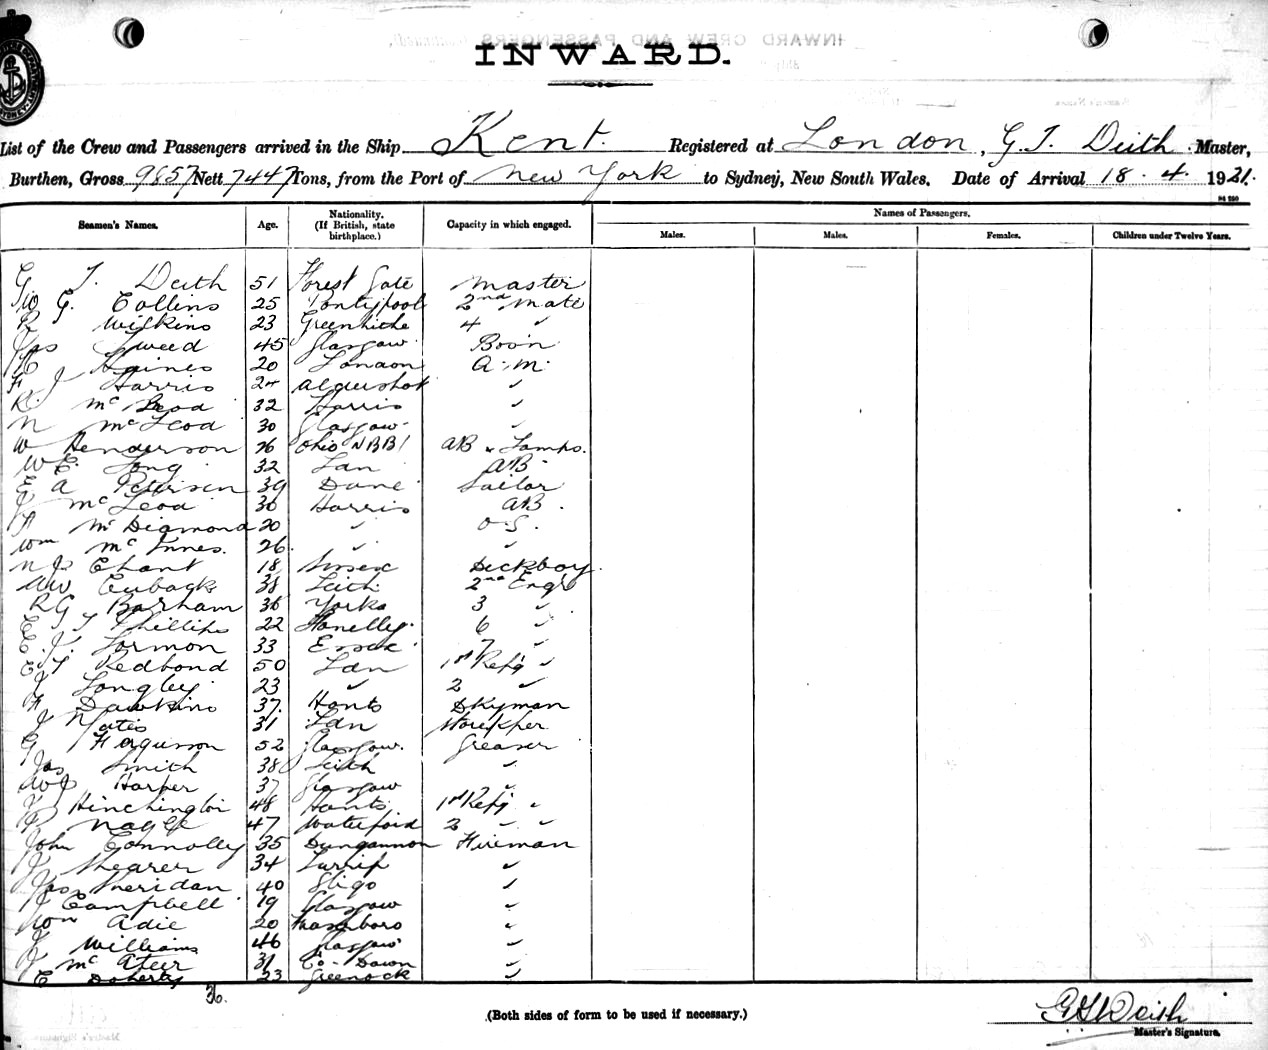 INWARD.
List of the Crew and Passengers arrived in the Ship Kent. Registered at London, G. T. Deith Master,
Burthen, Gross 9857 Nett 7447 Tons, from the Port of New York to Sydney, New South Wales. Date of Arrival 18. 4. 1921.
Seamen's Names. Age. Nationality. (If British, state birthplace.) Capacity in which engaged. Names of Passengers.
Males. Males. Females. Children under Twelve Years.
G T. Deith 51 Forest Gate Master
Geo G. Collins 25 Pontypool 2nd Mate
R Wilkins 23 Greenhithe 4 "
Jas Tweed 45 Glasgow Bosn
Haines 20 London A.M.
F J Harris 24 Aldershot "
R. McLeod 32 Harris "
N McLeod 30 Glasgow "
W Henderson 26 Ohio AB & Lamps.
W E. Long 32 Lon AB
E A Petersen 39 Dane Sailor
J McLeod 30 Harris AB.
McDiarmond 20 " O.S.
Wm McInnes. 26 " "
N J Chant 18 Sussex Deckboy
AW Cuback 38 Leith 2nd Engr
RG Barham 36 Yorks 3 "
C T Phillips 22 Llanelly 6 "
C. J. Lormon 33 Essex 7 "
E T Redbond 50 Ldn 1st Refg "
J Longley 23 " 2 "
F Dawkins 37. Hants Dkyman
J Yates 31 Ldn Storekper
G Ferguson 52 Glasgow. Greaser
Jas Smith 38 Leith "
WJ Harper 37 Glasgow "
Hinchington 48 Hants 1st Refg "
Nagle 47 Waterford 2 " "
John Connolly 35 Dungannon Fireman
J Shearer 34 "
Jas Sheridan 40 Sligo "
J Campbell 19 Glasgow "
Wm Adie 20 Frasrboro "
J Williams 46 Glasgow "
J McAteer 31 Co-Down "
C Doherty 23 Greenock "
36.
(Both sides of form to be used if necessary.)
G T Deith
Master's Signature.